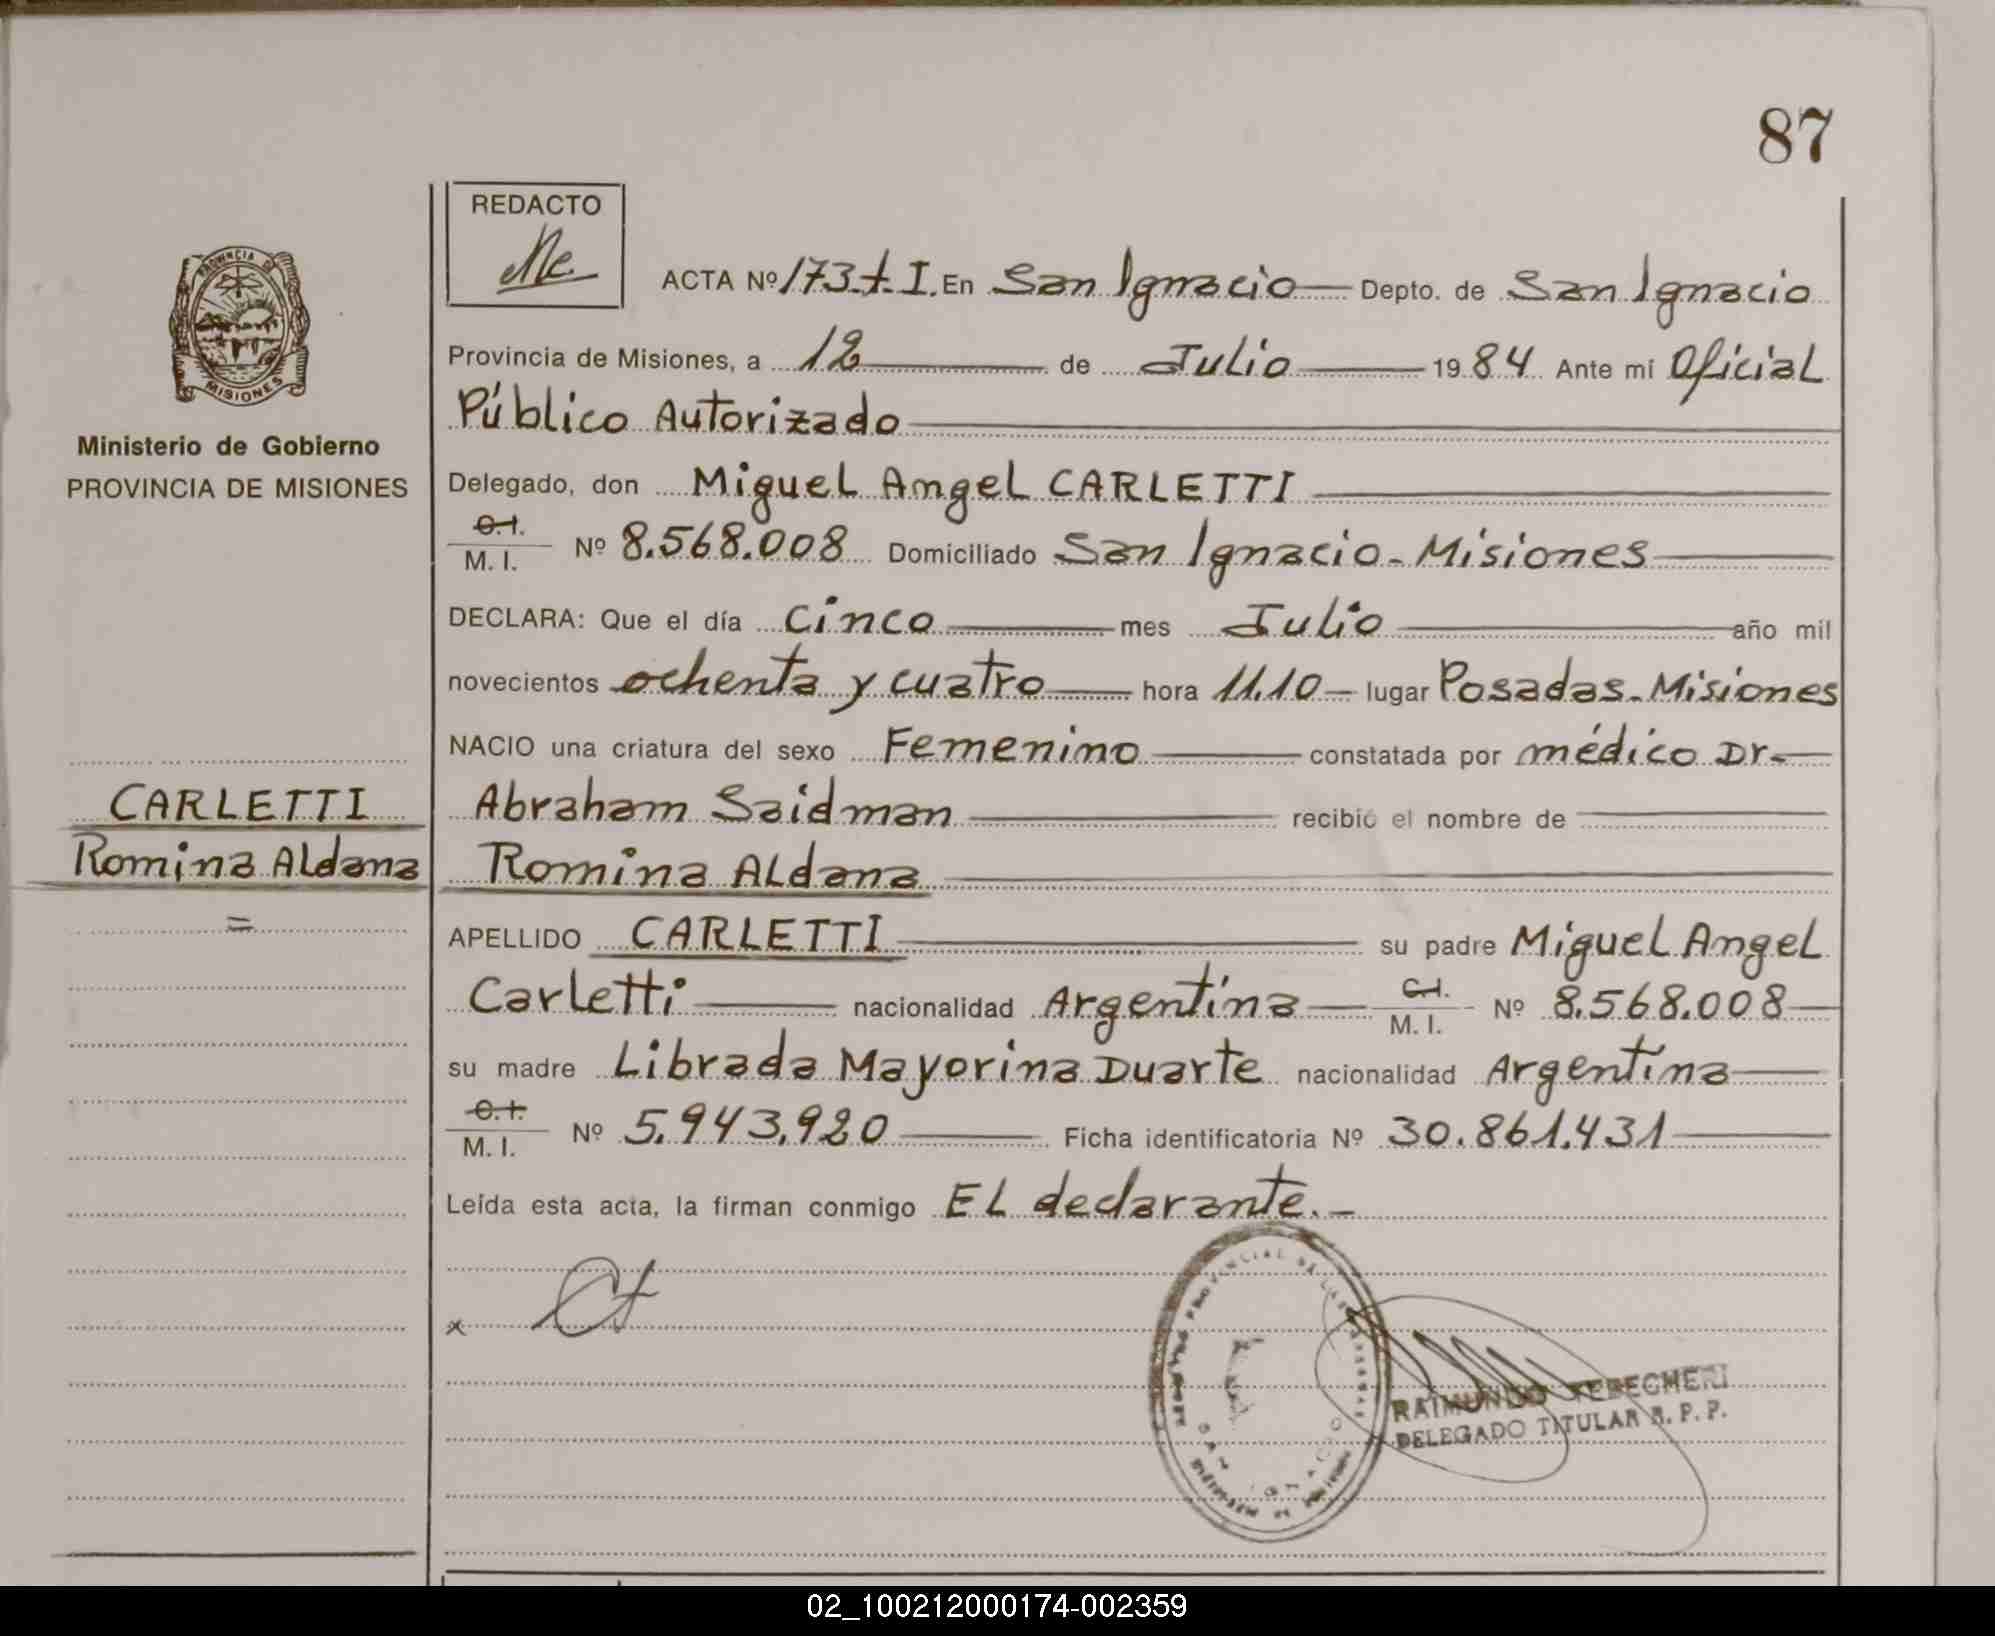 87
REDACTO
PROVINCIA DE
MISIONES
Ministerio de Gobierno
PROVINCIA DE MISIONES
ACTA Nº 173-t-I. En San Ignacio Depto. de San Ignacio
Provincia de Misiones, a 12 de Julio 1984 Ante mi Oficial
Público Autorizado
Delegado, don Miguel Angel CARLETTI
C.I.
M. I. Nº 8.568.008 Domiciliado San Ignacio - Misiones
DECLARA: Que el día cinco mes Julio año mil
novecientos ochenta y cuatro hora 11.10 - lugar Posadas - Misiones
NACIO una criatura del sexo Femenino constatada por médico Dr.
Abraham Saidman recibió el nombre de
CARLETTI
Romina Aldana
=
Romina Aldana
APELLIDO CARLETTI su padre Miguel Angel
Carletti nacionalidad Argentina C.I.
M. I. Nº 8.568.008
su madre Librada Mayorina Duarte nacionalidad Argentina
C.I.
M. I. Nº 5.943.920 Ficha identificatoria Nº 30.861.431
Leída esta acta, la firman conmigo El declarante.-
x
PROVINCIAL DE LAS PERSONAS
SAN IGNACIO
RAIMUNDO
DELEGADO TITULAR R. P. P.
02_100212000174-002359